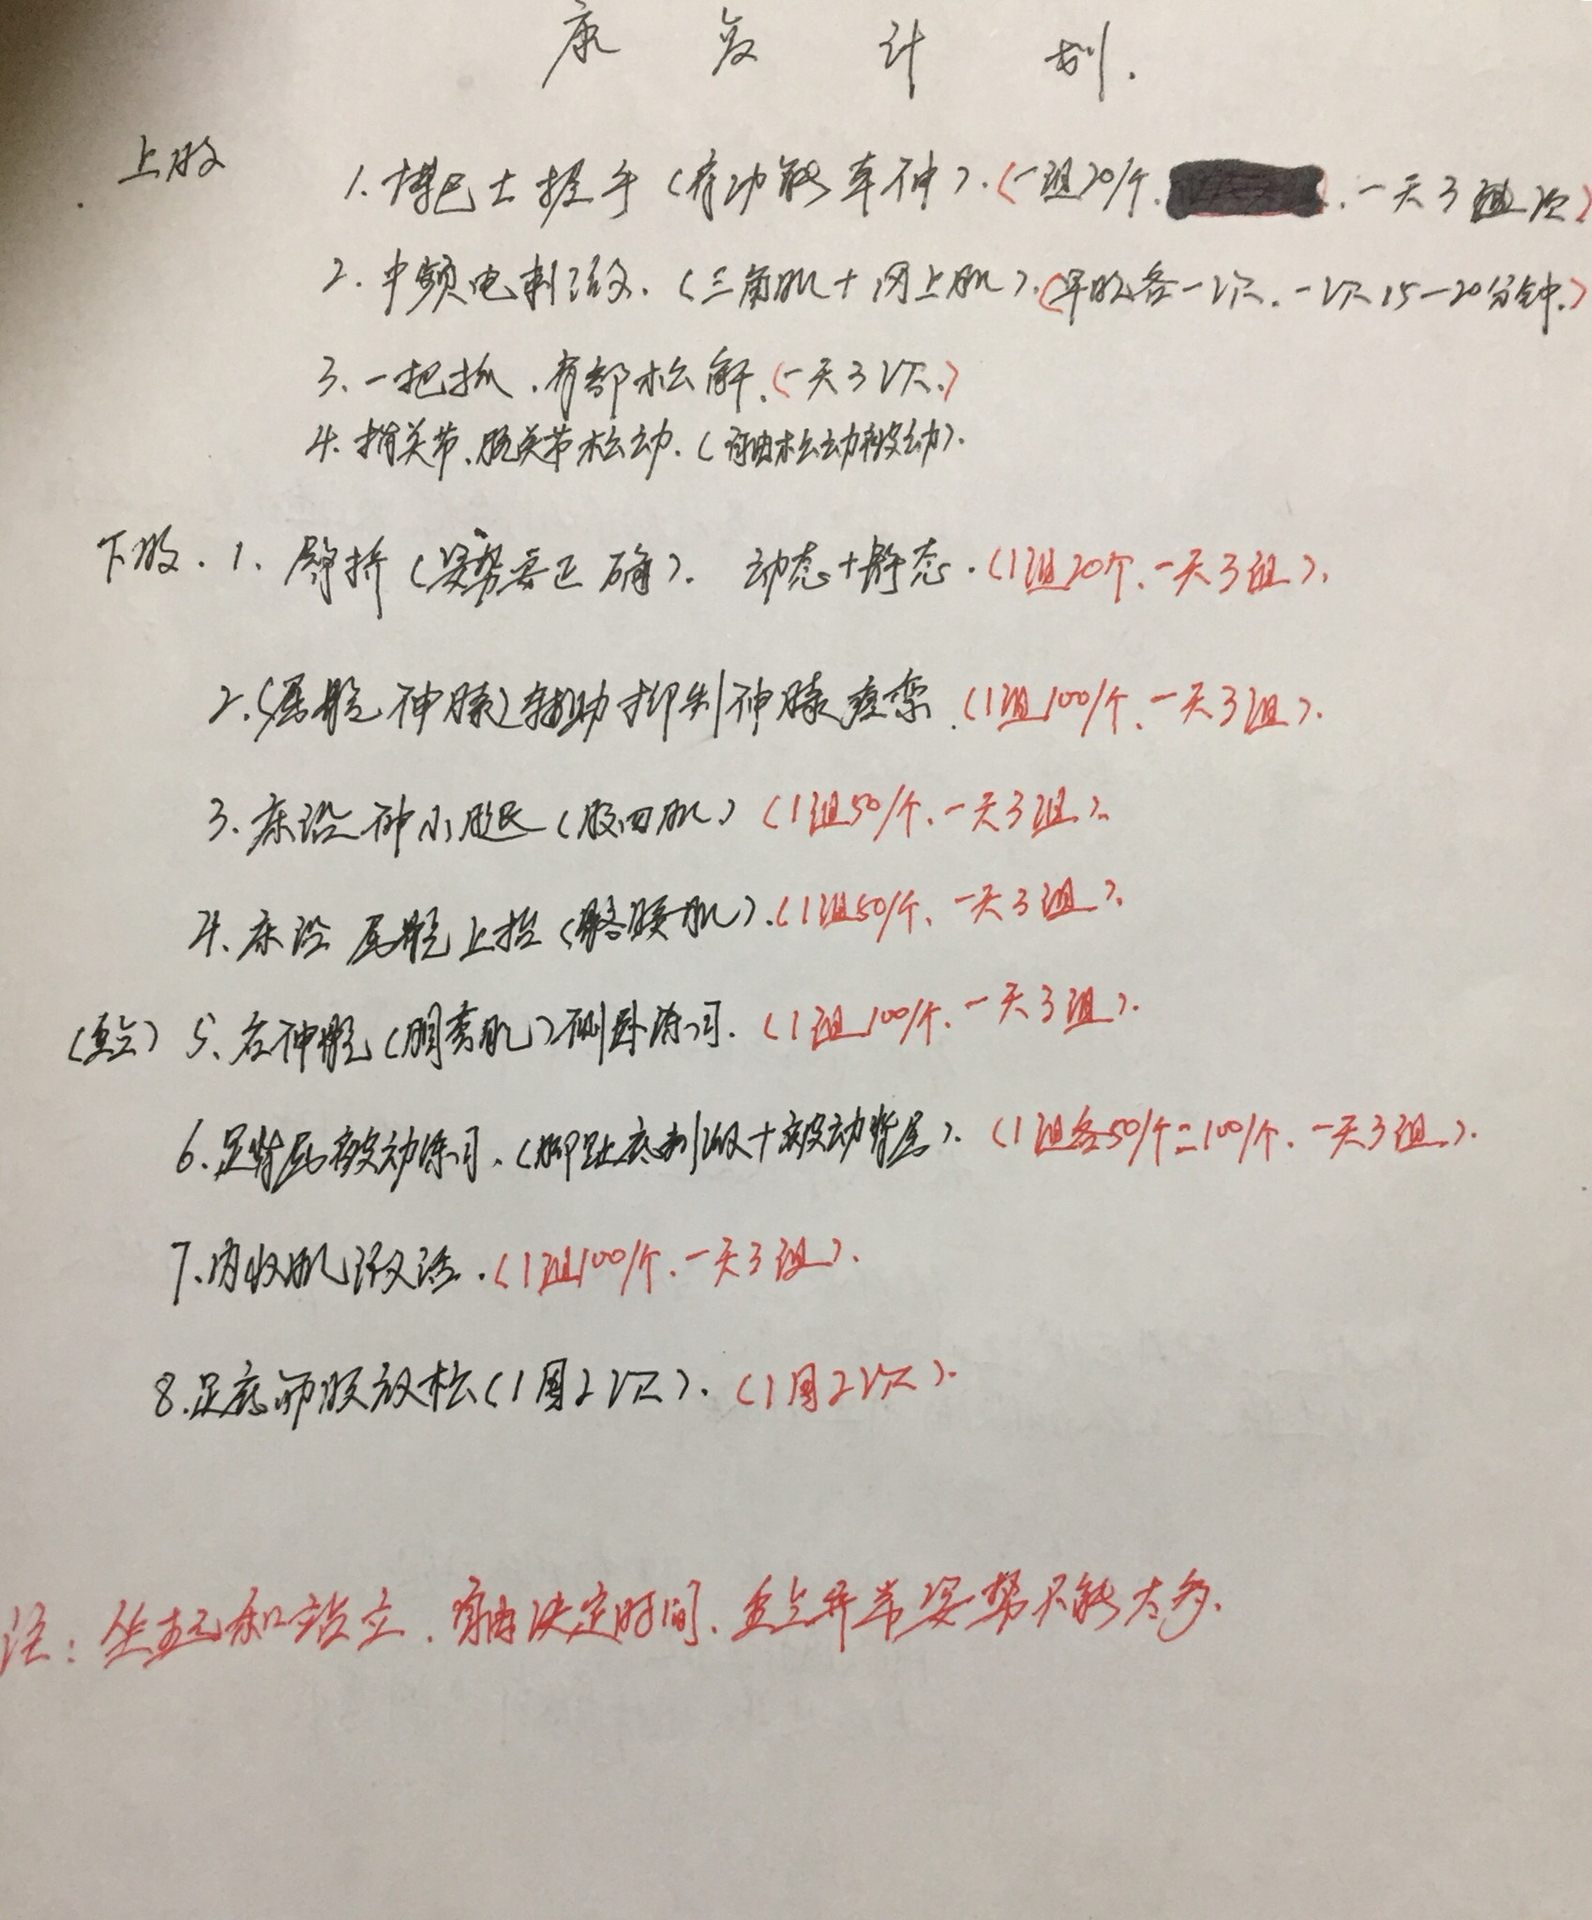 康复计划.
上肢
1.博巴士握手(有功能牵伸).(一组20/个.一天3次)
2.中频电刺激.(三角肌+冈上肌).(早晚各一次.一次15—20分钟.)
3.一把抓.肩部松解.(一天3次.)
4.指关节、腕关节松动.(自由松动被动).
下肢.1.臀桥(姿势要正确). 动态+静态.(1组20个、一天3组).
2.(屈髋伸膝)辅助抑制伸膝痉挛.(1组100/个、一天3组).
3.床沿伸小腿(股四肌)(1组50/个、一天3组).
4.床沿屈髋上抬(髂腰肌).(1组50/个、一天3组).
(重点)5、右伸髋(腘绳肌)侧卧练习.(1组100/个、一天3组).
6.足背屈被动练习.(脚趾底刺激+被动背屈).(1组各50/个=100/个、一天3组.).
7.内收肌激活.(1组100/个、一天3组).
8.足底筋膜放松(1周2次).(1周2次).
注:坐起和站立.自由决定时间、重点异常姿势不能太多.